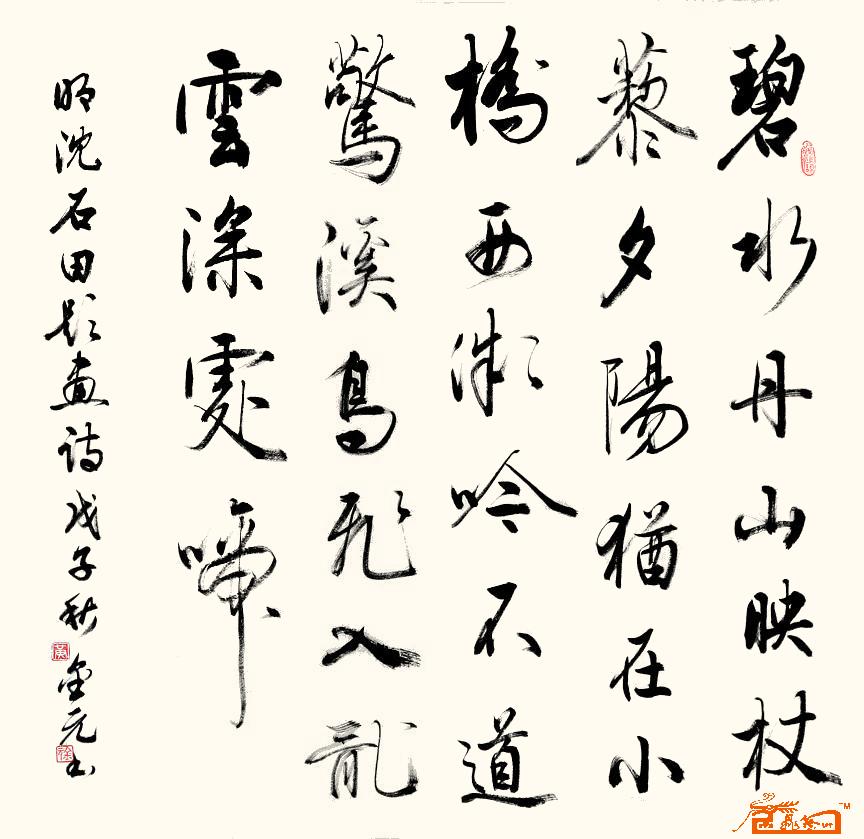 碧水丹山映杖
藜夕陽猶在小
橋西微吟不道
驚溪鳥飛入亂
雲深處啼
明沈石田題畫詩戊子秋金元书